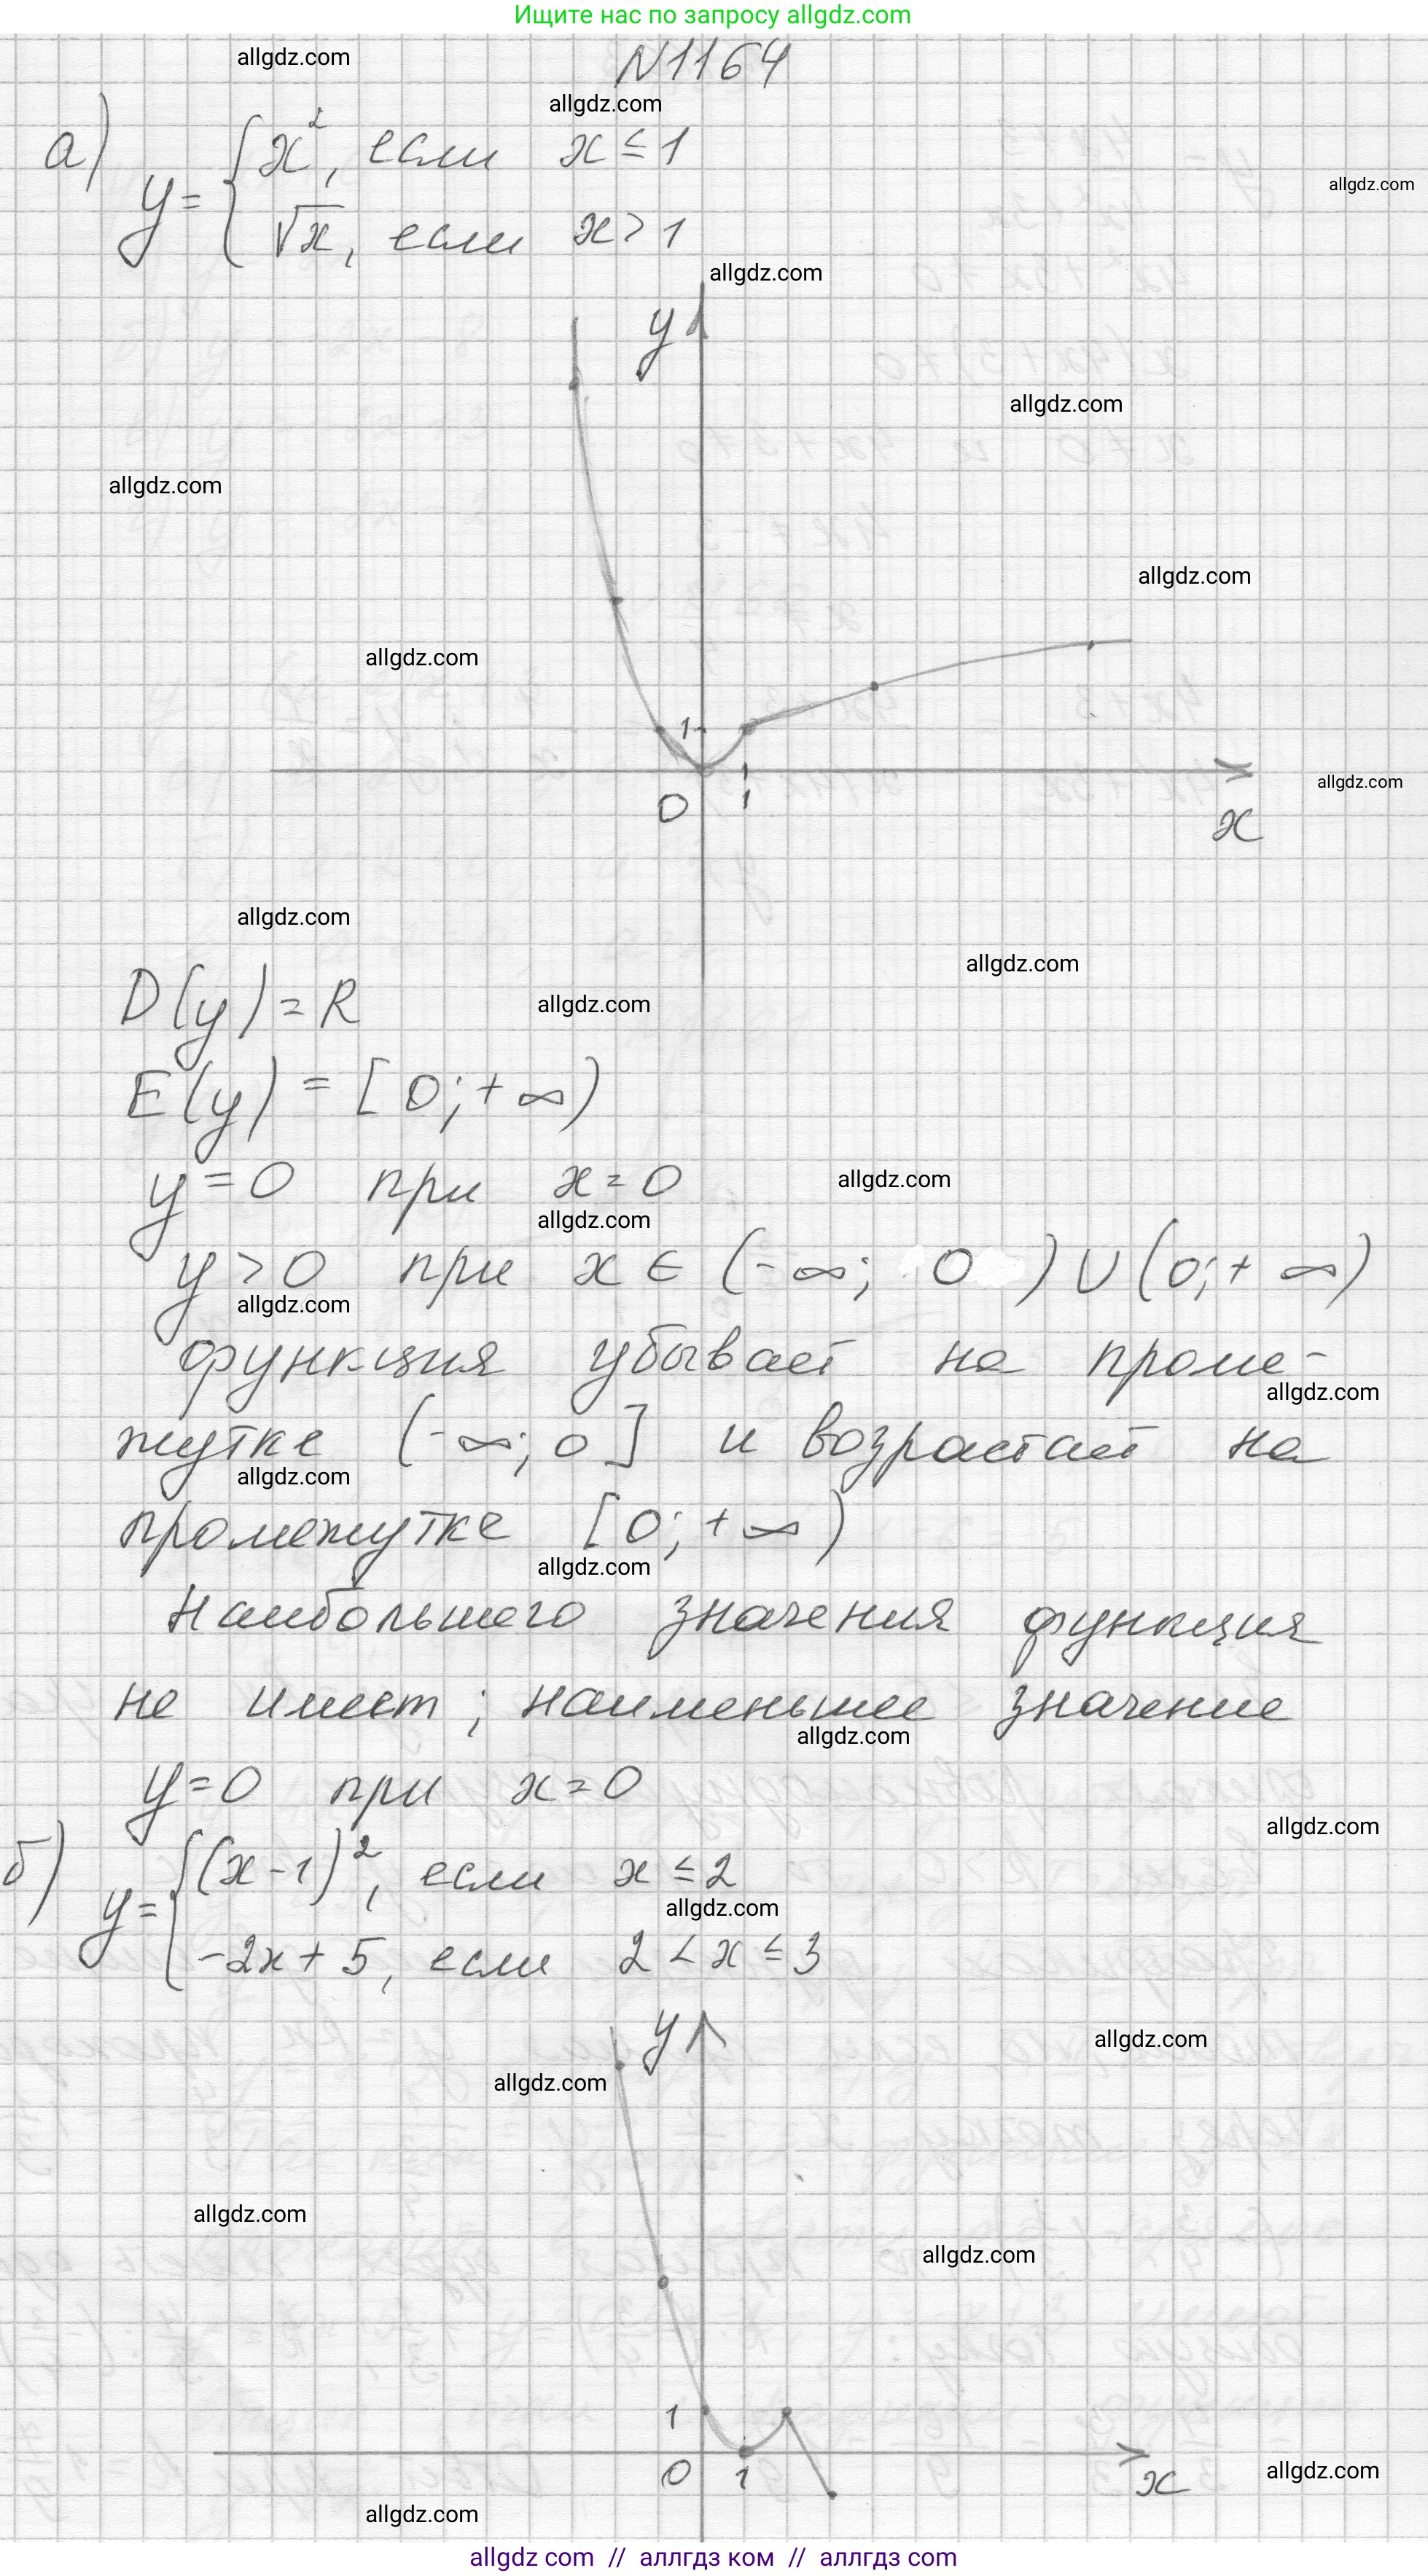 Ищите нас по запросу allgdz.com
allgdz.com
N1164
allgdz.com
а) y = { x², если x ≤ 1
√x, если x > 1
allgdz.com
allgdz.com
y
allgdz.com
allgdz.com
allgdz.com
allgdz.com
1
0 1
x
allgdz.com
allgdz.com
allgdz.com
D(y) = R
allgdz.com
E(y) = [0; +∞)
y = 0 при x = 0
allgdz.com
allgdz.com
y > 0 при x ∈ (-∞; 0) ∪ (0; +∞)
allgdz.com
функция убывает на проме-
allgdz.com
жутке (-∞; 0] и возрастает на
allgdz.com
промежутке [0; +∞)
allgdz.com
Наибольшего значения функция
не имеет; наименьшее значение
allgdz.com
y = 0 при x = 0
allgdz.com
б) y = { (x-1)², если x ≤ 2
allgdz.com
-2x + 5, если 2 < x ≤ 3
y
allgdz.com
allgdz.com
allgdz.com
allgdz.com
1
0 1
x
allgdz.com
allgdz.com
allgdz com // аллгдз ком // аллгдз com